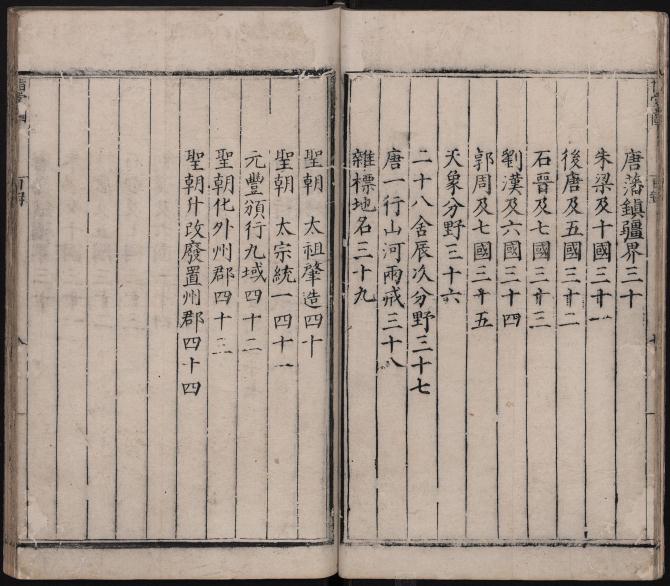 唐藩鎮疆界三十
朱梁及十國三十一
後唐及五國三十二
石晉及七國三十三
劉漢及六國三十四
郭周及七國三十五
天象分野三十六
二十八舍辰次分野三十七
唐一行山河兩戒三十八
雜標地名三十九
聖朝 太祖肇造四十
聖朝 太宗統一四十一
元豐頒行九域四十二
聖朝化外州郡四十三
聖朝升改廢置州郡四十四